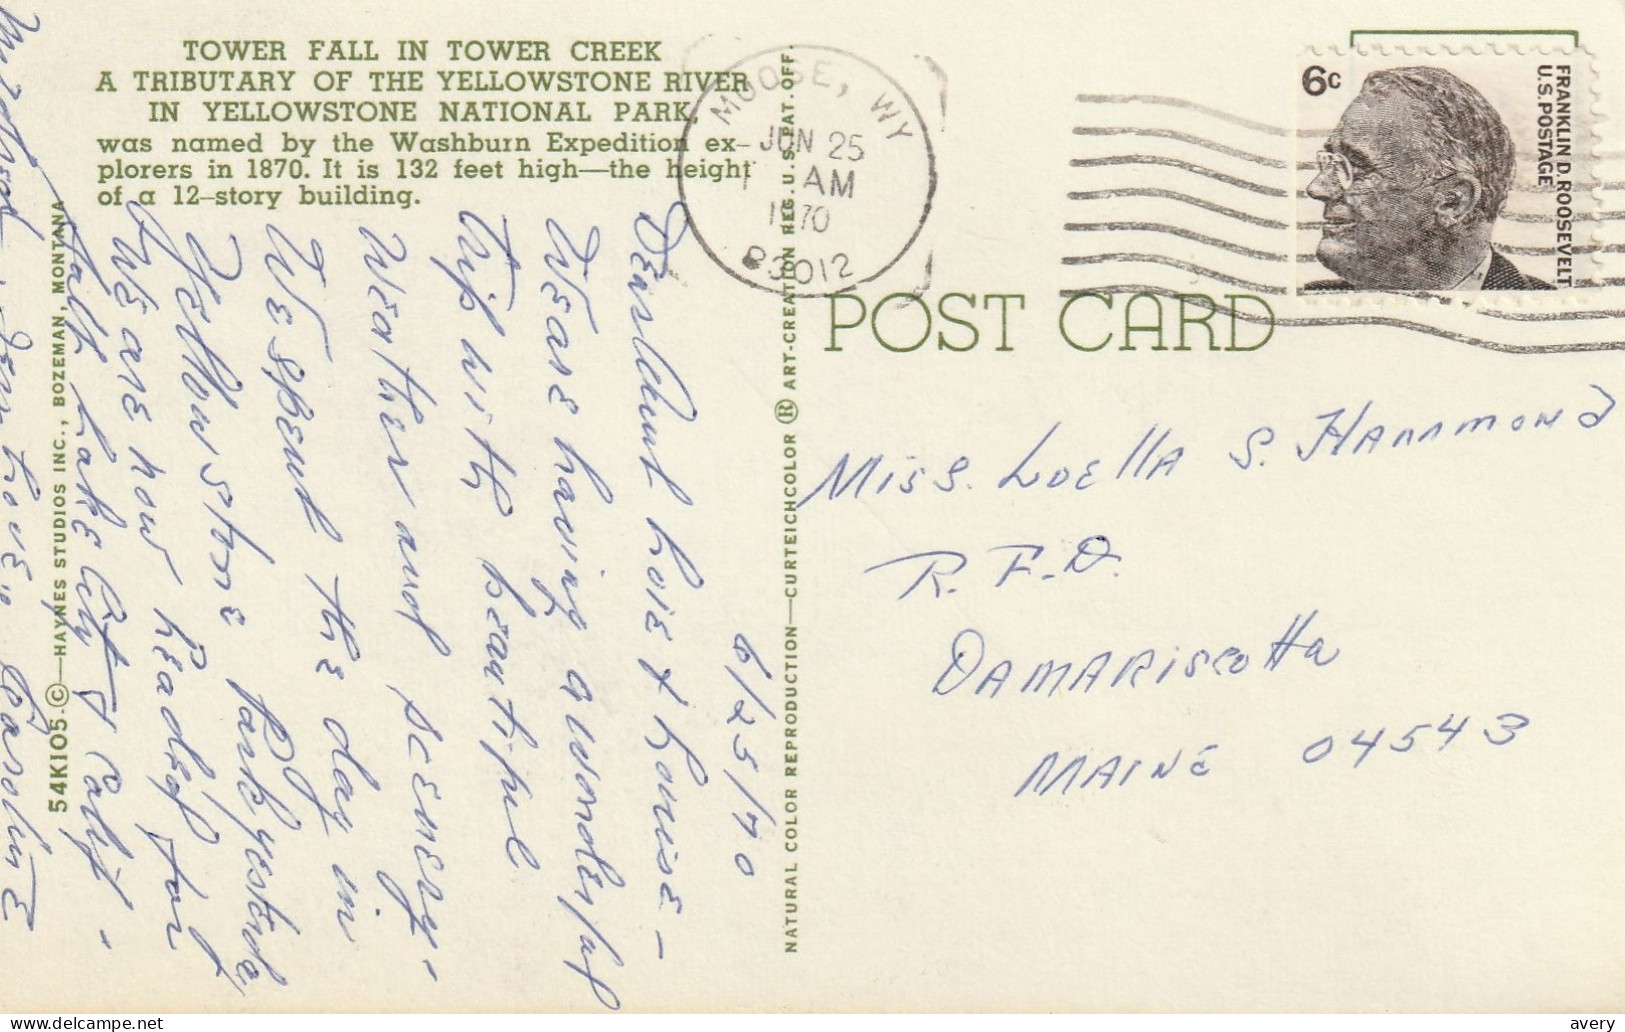 TOWER FALL IN TOWER CREEK
A TRIBUTARY OF THE YELLOWSTONE RIVER
IN YELLOWSTONE NATIONAL PARK
was named by the Washburn Expedition ex-
plorers in 1870. It is 132 feet high—the height
of a 12-story building.
54K105-©—HAYNES STUDIOS INC., BOZEMAN, MONTANA
NATURAL COLOR REPRODUCTION—CURTEICHCOLOR ® ART-CREATION REG. U.S. PAT. OFF.
MOOSE, WY
JUN 25
AM
1970
83012
6c
FRANKLIN D. ROOSEVELT
U.S. POSTAGE
POST CARD
6/25/70
Dear Aunt Loie & Louise-
We are having a wonderful
trip with beautiful
weather and scenery.
We spent the day in
Yellowstone Park yesterday
We are now headed for
Salt Lake City & Calif.
love, Caroline
Miss. Loella S. Hammond
R.F.D.
Damariscotta
Maine 04543
avery